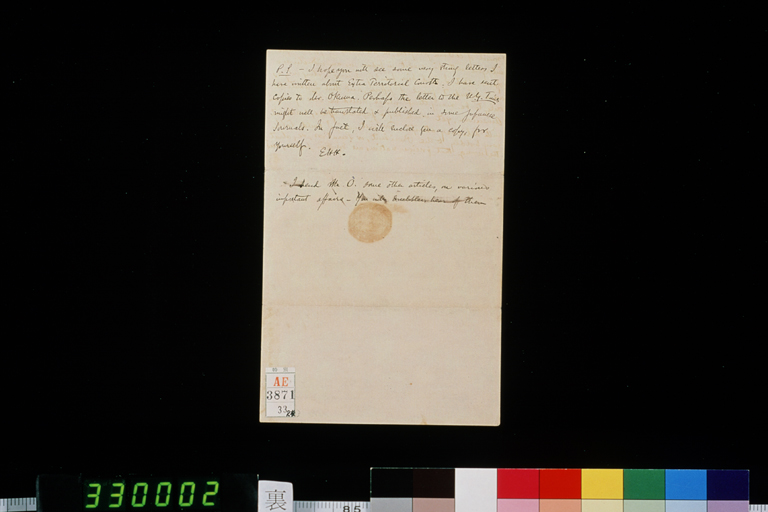 P.S. – I hope you will see some very strong letters I
have written about Extra Territorial Courts. I have sent
copies to Mr. Okuma. Perhaps the letter to the N.Y. Times
might well be translated & published, in some Japanese
journals. In fact, I will enclose you a copy, for
yourself.
EHH.
I send Mr. O. some other articles, on various
important affairs – You will
AE
3871
33
24
330002
裏
85